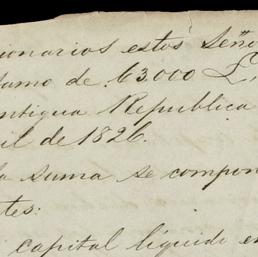 cionarios estos Señor
stamo de 63.000 £
antigua Republica
il de 1826.
la suma se compon
tes:
capital líquido en